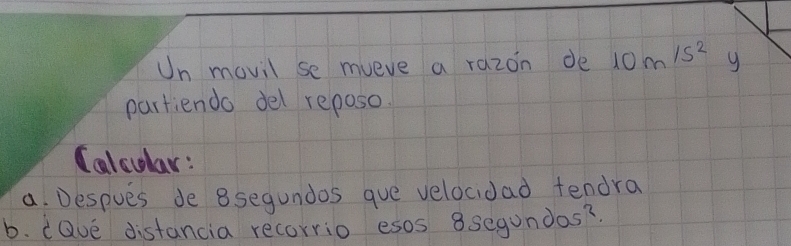 Un movil se mueve a razón de 10m/s² y
partiendo del reposo.
Calcular:
a. Después de 8segundos que velocidad tendra
b. ¿Qué distancia recorrio esos 8segundos?.